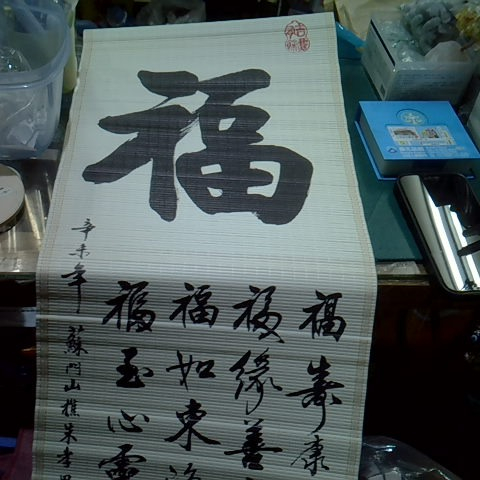 福
福壽康
福緣善
福如東海
福至心靈
辛未年 蘇門山樵朱孝